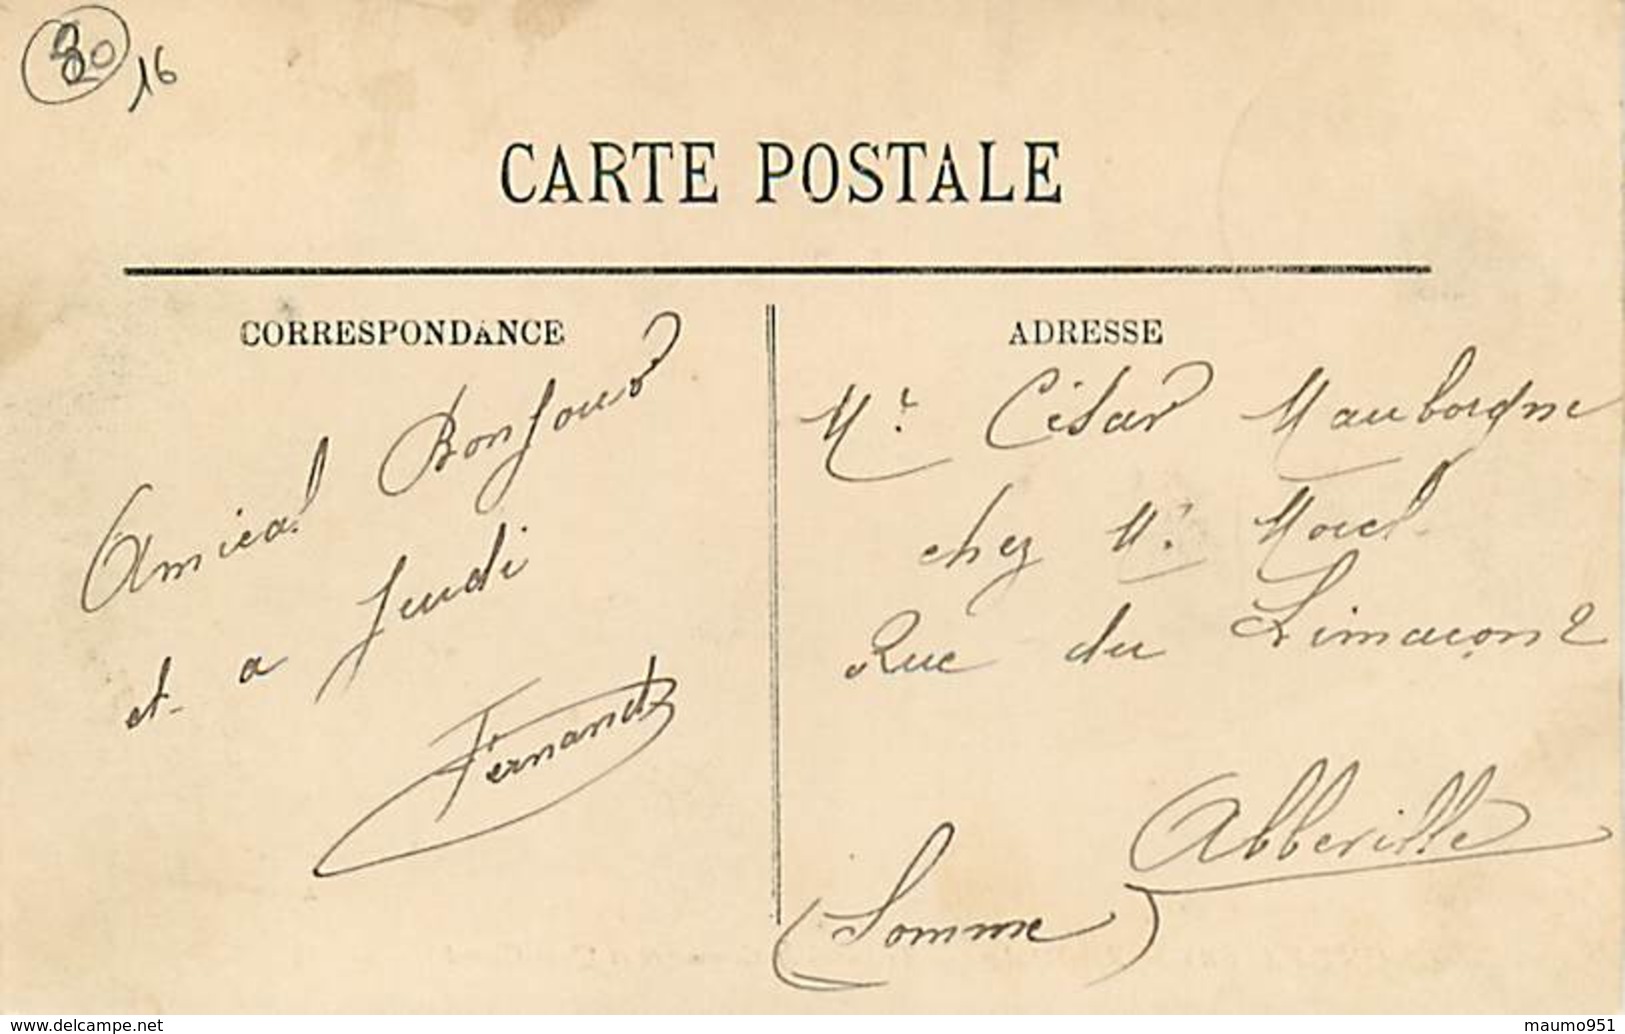 80
16
CARTE POSTALE
CORRESPONDANCE
Amical Bonjour
et a Jeudi
Fernand
ADRESSE
Mr César Mauborgne
chez Mr Morel
Rue du Limaçon 2
Abbeville
(Somme)
www.delcampe.net
maumo951